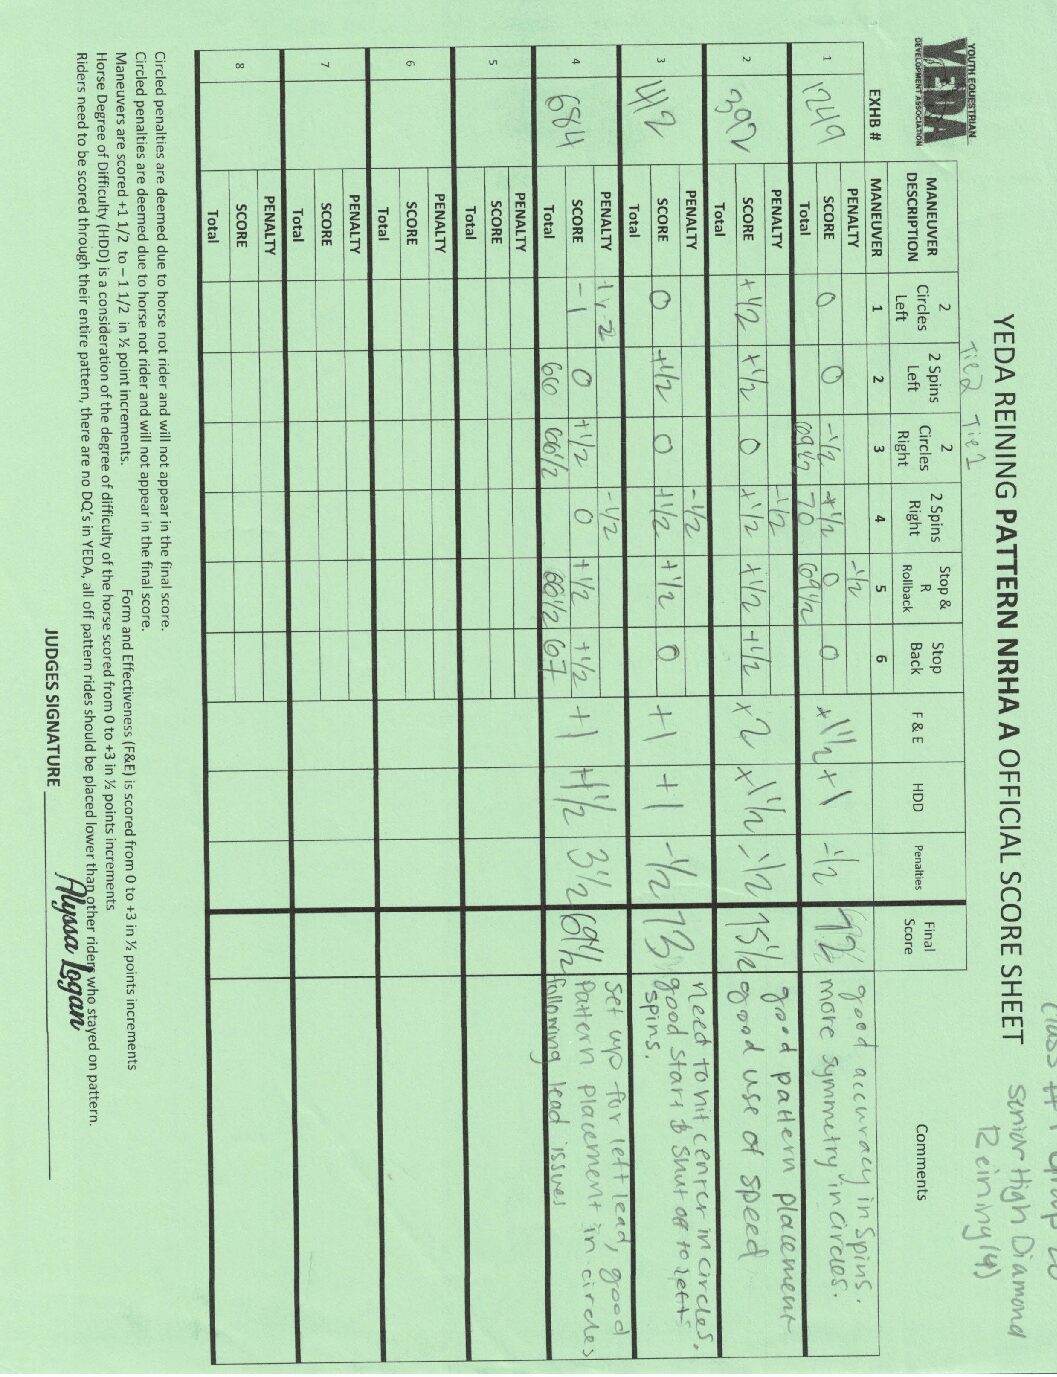 YOUTH EQUESTRIAN
YEDA
DEVELOPMENT ASSOCIATION
Tie 2 Tie 1
YEDA REINING PATTERN NRHA A OFFICIAL SCORE SHEET
Class #1 Group
Senior High Diamond
Reining (4)
MANEUVER DESCRIPTION 2 Circles Left 2 Spins Left 2 Circles Right 2 Spins Right Stop & R Rollback Stop Back F & E HDD Penalties Final Score Comments
EXHB # MANEUVER 1 2 3 4 5 6
1 1249 PENALTY -1/2
SCORE 0 0 -1/2 +1/2 0 0 +1 1/2 +1 -1/2 good accuracy in spins.
Total 69 1/2 70 69 1/2 more symmetry in circles.
2 392 PENALTY -1/2
SCORE +1/2 +1/2 0 +1/2 +1/2 +1/2 +2 +1 1/2 -1/2 75 1/2 good pattern placement
Total good use of speed
3 442 PENALTY -1/2
SCORE 0 +1/2 0 +1/2 +1/2 0 +1 +1 -1/2 73 need to hit center in circles.
Total good start & shut off to left spins.
4 684 PENALTY -1/2
SCORE -1 0 +1/2 0 +1/2 +1/2 +1 +1 1/2 3 1/2 69 1/2 set up for left lead, good
Total 66 66 1/2 66 1/2 67 pattern placement in circles
following lead issues
5 PENALTY
SCORE
Total
6 PENALTY
SCORE
Total
7 PENALTY
SCORE
Total
8 PENALTY
SCORE
Total
Circled penalties are deemed due to horse not rider and will not appear in the final score.
Circled penalties are deemed due to horse not rider and will not appear in the final score.
Maneuvers are scored +1 1/2 to – 1 1/2 in ½ point increments. Form and Effectiveness (F&E) is scored from 0 to +3 in ½ points increments
Horse Degree of Difficulty (HDD) is a consideration of the degree of difficulty of the horse scored from 0 to +3 in ½ points increments
Riders need to be scored through their entire pattern, there are no DQ's in YEDA, all off pattern rides should be placed lower than other riders who stayed on pattern.
JUDGES SIGNATURE Alyssa Logan